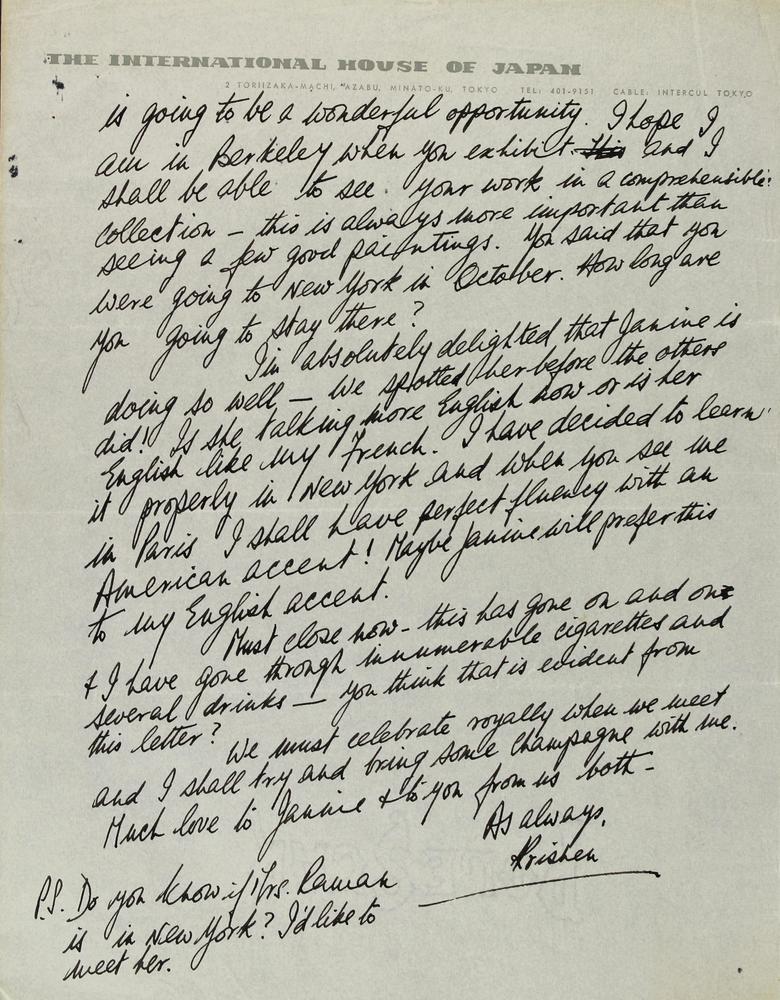 THE INTERNATIONAL HOUSE OF JAPAN
2 TORIIZAKA-MACHI, AZABU, MINATO-KU, TOKYO TEL: 401-9151 CABLE: INTERCUL TOKYO
is going to be a wonderful opportunity. I hope I
am in Berkeley when you exhibit this and I
shall be able to see your work in a comprehensible
collection – this is always more important than
seeing a few good paintings. You said that you
were going to New York in October. How long are
you going to stay there?
I'm absolutely delighted that Janine is
doing so well – We spotted her before the others
did! Is she talking more English now or is her
English like my French. I have decided to learn
it properly in New York and when you see me
in Paris I shall have perfect fluency with an
American accent! Maybe Janine will prefer this
to my English accent.
Must close now – this has gone on and on
& I have gone through innumerable cigarettes and
several drinks – you think that is evident from
this letter?
We must celebrate royally when we meet
and I shall try and bring some champagne with me.
Much love to Janine & to you from us both –
As always,
Krishen
P.S. Do you know if Mrs. Raman
is in New York? I'd like to
meet her.